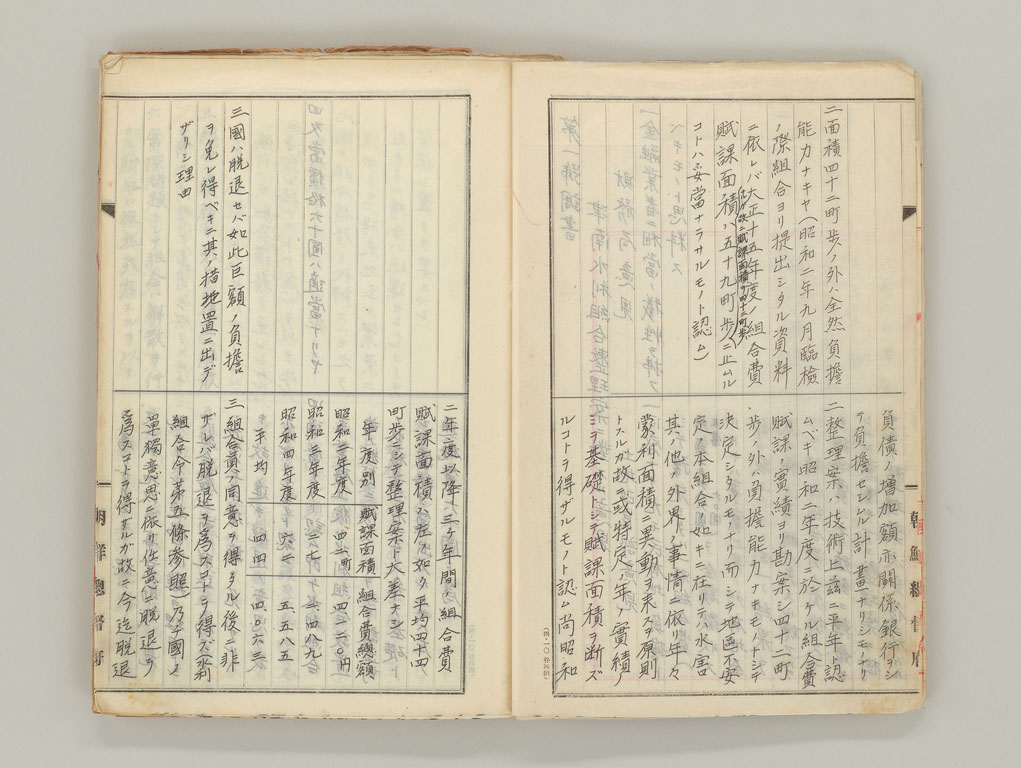 二面積四十二町歩ノ外ハ全然負擔
能力ナキヤ(昭和二年九月臨檢
ノ際組合ヨリ提出シタル資料
ニ依レバ大正十五年度ノ組合費
賦課面積ハ五十九町歩ニ止ムル
コトハ妥當ナラサルモノト認ム)
負債ノ増加額亦關係銀行ヲシ
テ負擔セシムル計畫ナリシモノナリ
二整理案ハ技術上茲ニ平年ト認
ムベキ昭和二年度ニ於ケル組合費
賦課ノ實績ヨリ勘案シ四十二町
歩ノ外ハ負擔能力ナキモノトシテ
決定シタルモノナリ而シテ地區不安
定ノ本組合ノ如キニ在リテハ水害
其ノ他ノ外界ノ事情ニ依リ年々
蒙利面積ニ異動ヲ來スヲ原則
トスルガ故ニ或特定ノ年ノ實積ノ
ミヲ基礎トシテ賦課面積ヲ断ズ
ルコトヲ得ザルモノト認ム尚昭和
朝鮮總督府
三國ハ脱退セバ如此巨額ノ負擔
ヲ免レ得ベキニ其ノ措置ニ出デ
ザリシ理由
二年度以降三ケ年間ノ組合費
賦課面積ハ左ノ如ク平均四十四
町歩ニシテ整理案ト大差ナシ
年度別 賦課面積 組合費總額
昭和二年度 四二町 四一二〇円
昭和三年度 二七 二四八九
昭和四年度 六二 五五八五
平均 四四 四〇六三
三組合員ノ同意ヲ得タル後ニ非
ザレバ脱退ヲ為スコトヲ得ズ(水利
組合令第五條参照)乃チ國ノ
單獨意思ニ依リ任意ニ脱退ヲ
為スコトヲ得ザルガ故ニ今迄脱退
朝鮮總督府